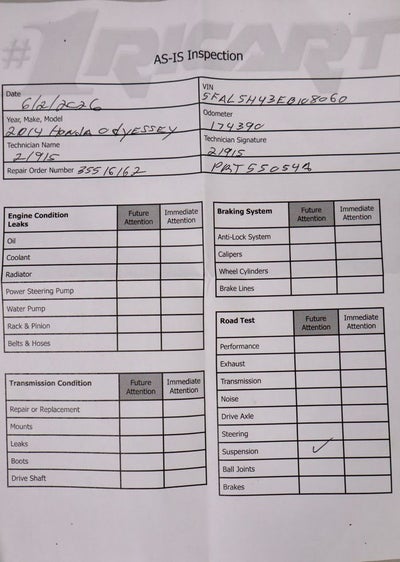 #1RICART
AS-IS Inspection
Date
6/2/2026
VIN
5FAL5H43EB108060
Year, Make, Model
2014 Honda OdyESSEY
Odometer
174390
Technician Name
21915
Technician Signature
21915
Repair Order Number 35516162
PRT55054A
Engine Condition Future Immediate
Leaks Attention Attention
Oil
Coolant
Radiator
Power Steering Pump
Water Pump
Rack & Pinion
Belts & Hoses
Transmission Condition Future Immediate
Attention Attention
Repair or Replacement
Mounts
Leaks
Boots
Drive Shaft
Braking System Future Immediate
Attention Attention
Anti-Lock System
Calipers
Wheel Cylinders
Brake Lines
Road Test Future Immediate
Attention Attention
Performance
Exhaust
Transmission
Noise
Drive Axle
Steering
Suspension ✓
Ball Joints
Brakes